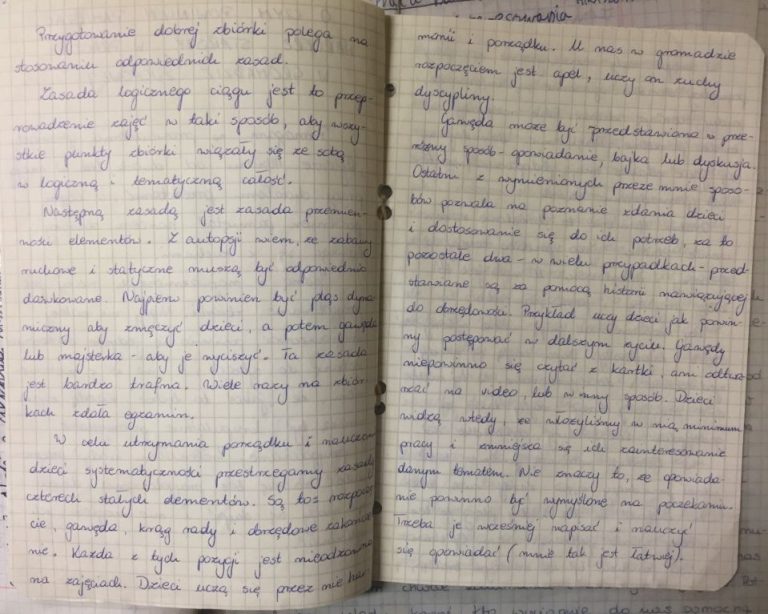 Przygotowanie dobrej zbiórki polega na
stosowaniu odpowiednich zasad.
Zasada logicznego ciągu jest to przep-
rowadzenie zajęć w taki sposób, aby wszy-
stkie punkty zbiórki wiązały się ze sobą
w logiczną i tematyczną całość.
Następną zasadą jest zasada przemien-
ności elementów. Z autopsji wiem, że zabawy
ruchowe i statyczne muszą być odpowiednio
dawkowane. Najpierw powinien być pląs dyna-
miczny aby zmęczyć dzieci, a potem gawęda
lub majsterka - aby je wyciszyć. Ta zasada
jest bardzo trafna. Wiele razy na zbiór-
kach zdała egzamin.
W celu utrzymania porządku i nauczenia
dzieci systematyczności przestrzegamy zasady
czterech stałych elementów. Są to: rozpoczę
cie, gawęda, krąg rady i obrzędowe zakończe
nie. Każda z tych pozycji jest nieodzowna
na zajęciach. Dzieci uczą się przez nie har
monii i porządku. U nas w gromadzie
rozpoczęciem jest apel, uczy on zuchy
dyscypliny.
Gawęda może być przedstawiona w prze-
różny sposób - opowiadanie, bajka lub dyskusja.
Ostatni z wymienionych przeze mnie sposo-
bów pozwala na poznanie zdania dzieci
i dostosowanie się do ich potrzeb, za to
pozostałe dwa - w wielu przypadkach - przed-
stawiane są za pomocą historii nawiązującej
do obrzędowości. Przykład uczy dzieci jak powin-
ny postępować w dalszym życiu. Gawędy
niepowinno się czytać z kartki, ani odtwa
rzać na video, lub w inny sposób. Dzieci
widzą wtedy, że włożyliśmy w nią minimum
pracy i zmniejsza się ich zainteresowanie
danym tematem. Nie znaczy to, że opowiada-
nie powinno być wymyślone na poczekaniu.
Trzeba je wcześniej napisać i nauczyć
się opowiadać (mnie tak jest łatwiej).